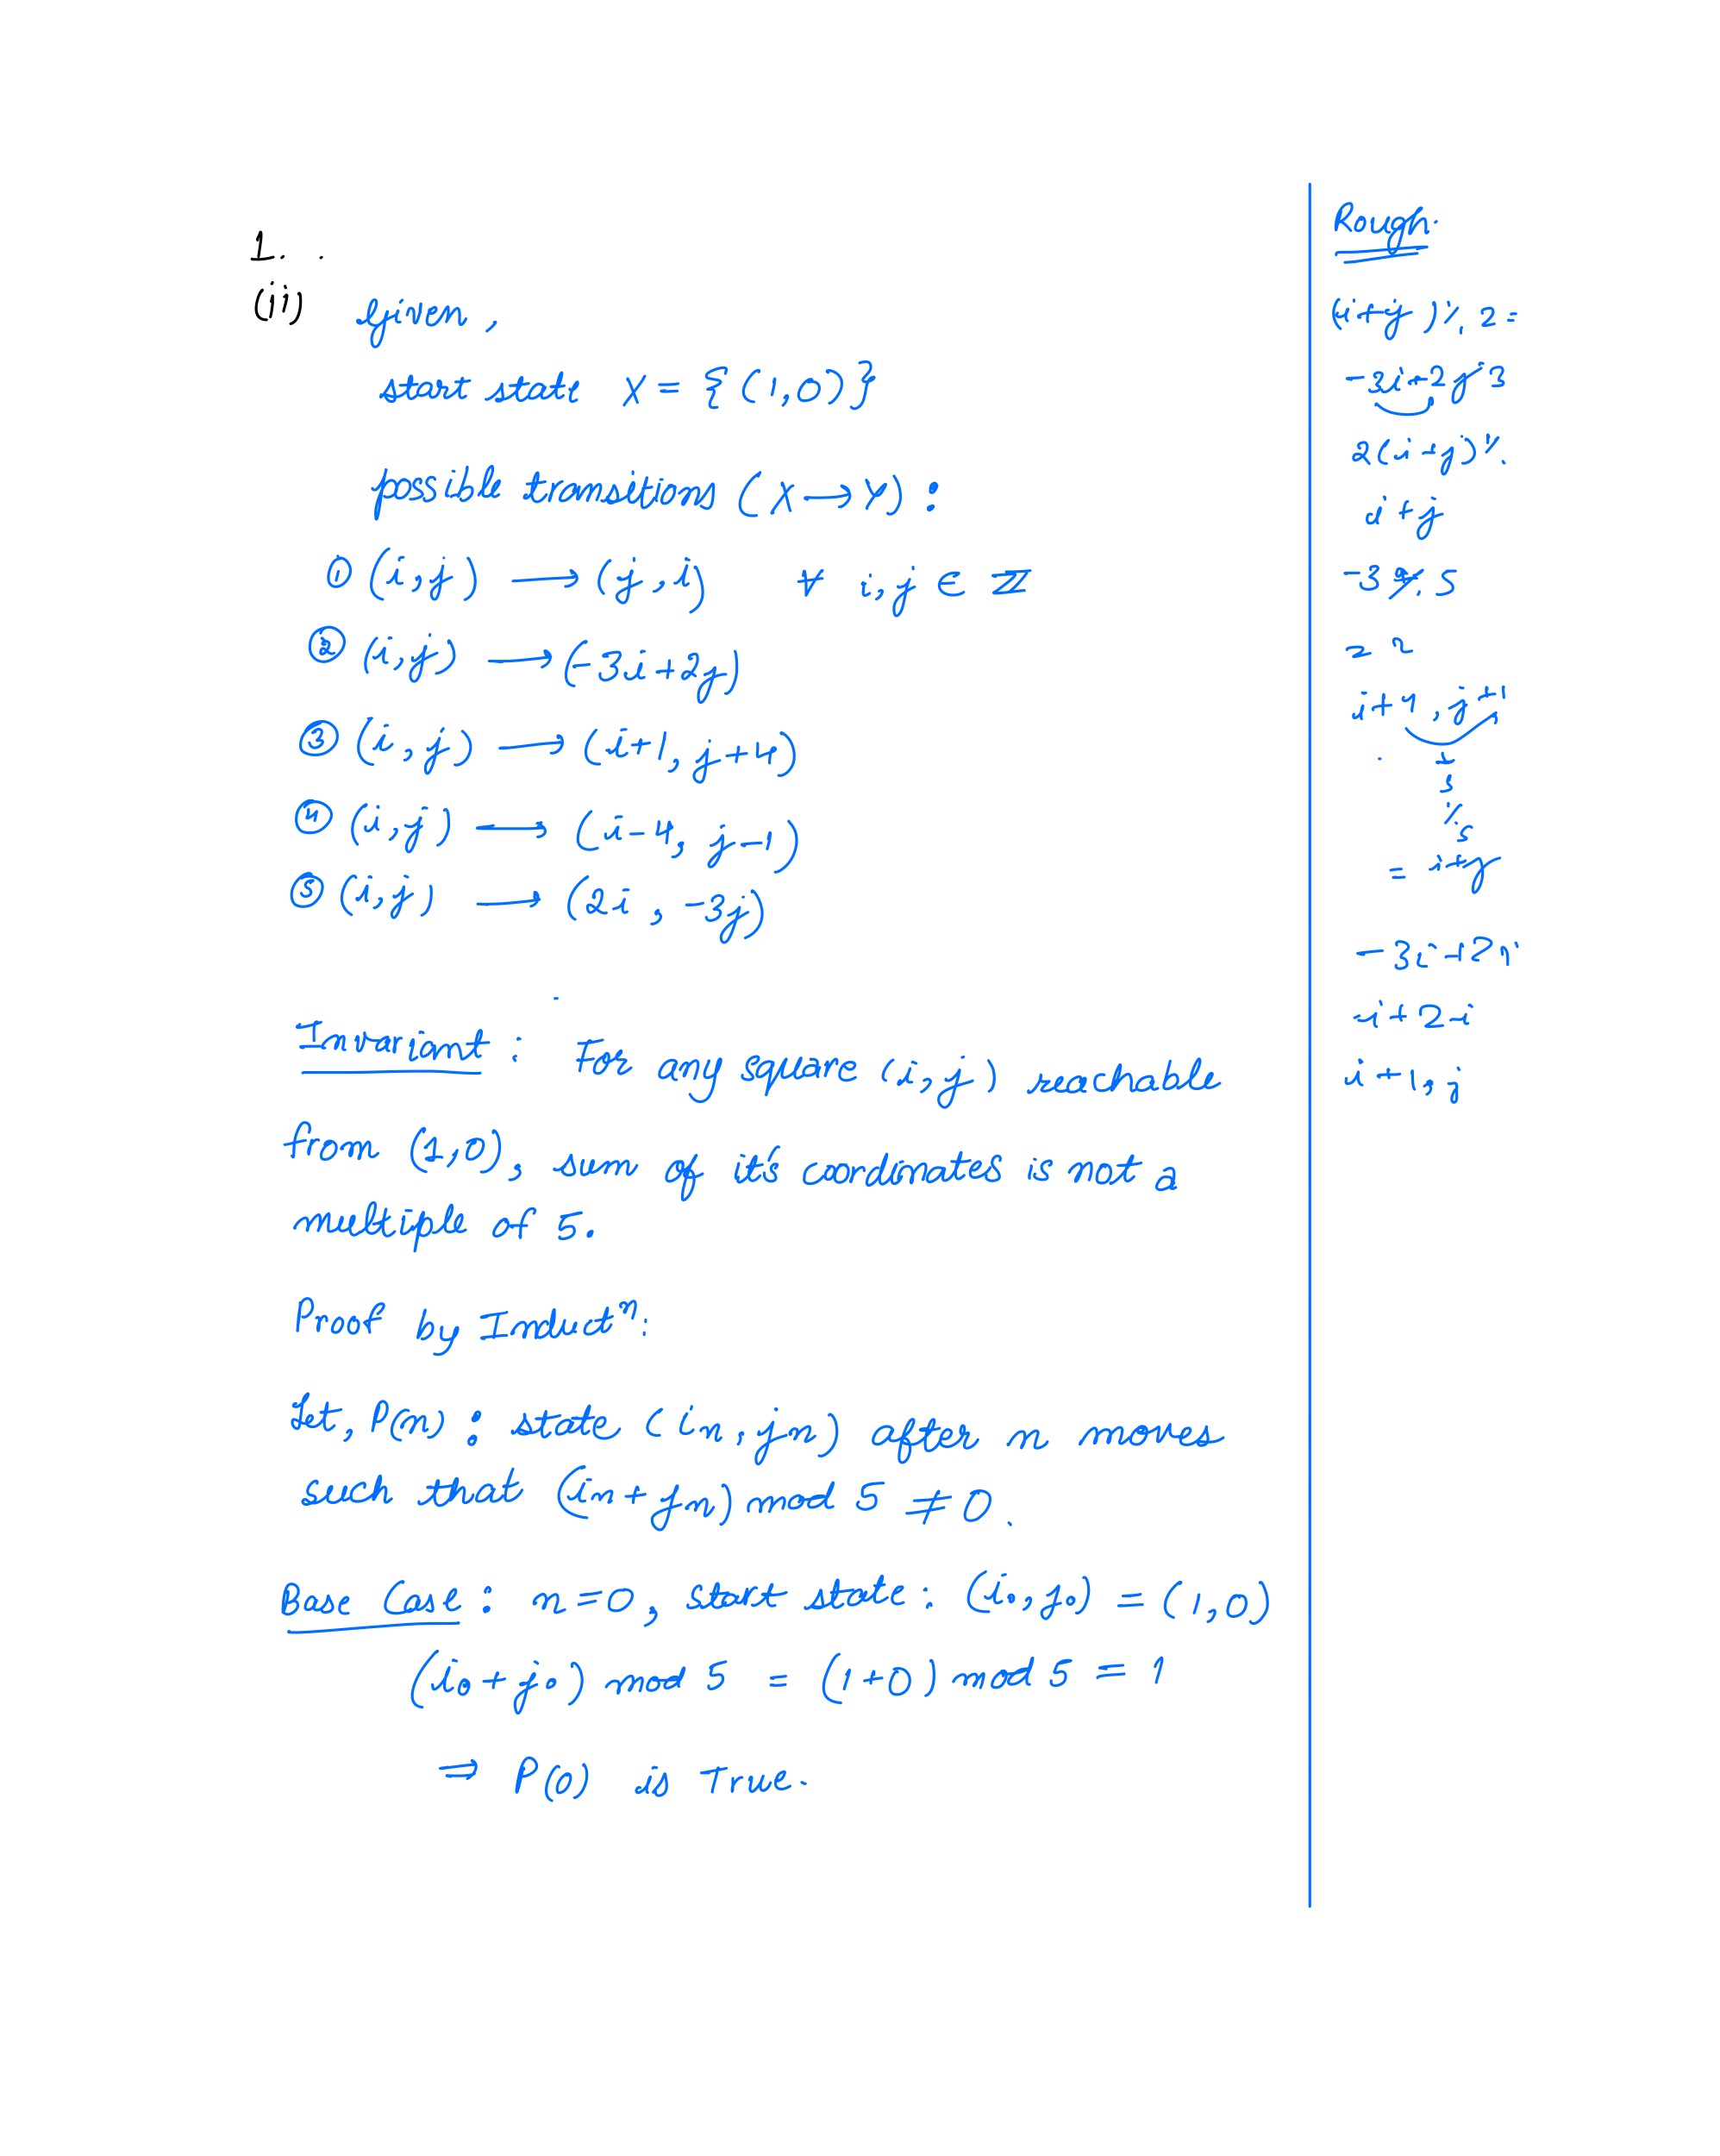 1.
(ii) Given,
start state X = {(1,0)}
possible transitions (X → Y) :
① (i,j) → (j,i) ∀ i,j ∈ ℤ
② (i,j) → (-3i+2j)
③ (i,j) → (i+1, j+4)
④ (i,j) → (i-4, j-1)
⑤ (i,j) → (2i, -3j)
Invariant : For any square (i,j) reachable
from (1,0), sum of it's coordinates is not a
multiple of 5.
Proof by Inductⁿ:
Let, P(n) : state (in, jn) after n moves
such that (in+jn) mod 5 ≠ 0.
Base Case : n=0, start state : (i₀,j₀) = (1,0)
(i₀+j₀) mod 5 = (1+0) mod 5 = 1
⇒ P(0) is True.
Rough.
(i+j)% 2 =
-3i+2j 3
2(i+j)%
i+j
-3 % 5
= 2
i+4, j+1
5
%
5
= i+j
-3i+2
i+2-i
i+1, j